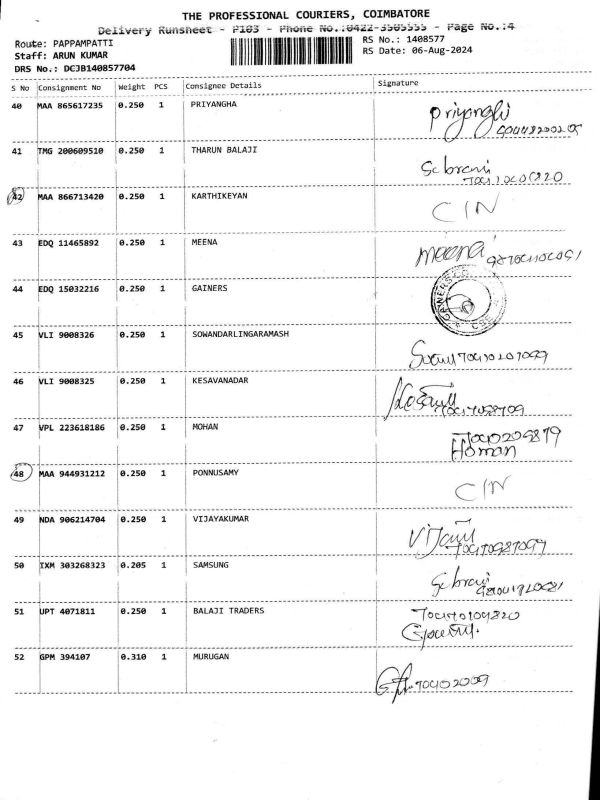 THE PROFESSIONAL COURIERS, COIMBATORE
Delivery Runsheet - P103 - Phone No.:0422-3505555 - Page No.:4
Route: PAPPAMPATTI RS No.: 1408577
Staff: ARUN KUMAR RS Date: 06-Aug-2024
DRS No.: DCJB140857704
S No Consignment No Weight PCS Consignee Details Signature
40 MAA 865617235 0.250 1 PRIYANGHA
41 TMG 200609510 0.250 1 THARUN BALAJI
42 MAA 866713420 0.250 1 KARTHIKEYAN CIN
43 EDQ 11465892 0.250 1 MEENA meena
44 EDQ 15032216 0.250 1 GAINERS GAINERS
45 VLI 9008326 0.250 1 SOWANDARLINGARAMASH
46 VLI 9008325 0.250 1 KESAVANADAR
47 VPL 223618186 0.250 1 MOHAN
Homan
48 MAA 944931212 0.250 1 PONNUSAMY CIN
49 NDA 906214704 0.250 1 VIJAYAKUMAR
50 IXM 303268323 0.205 1 SAMSUNG
51 UPT 4071811 0.250 1 BALAJI TRADERS
52 GPM 394107 0.310 1 MURUGAN